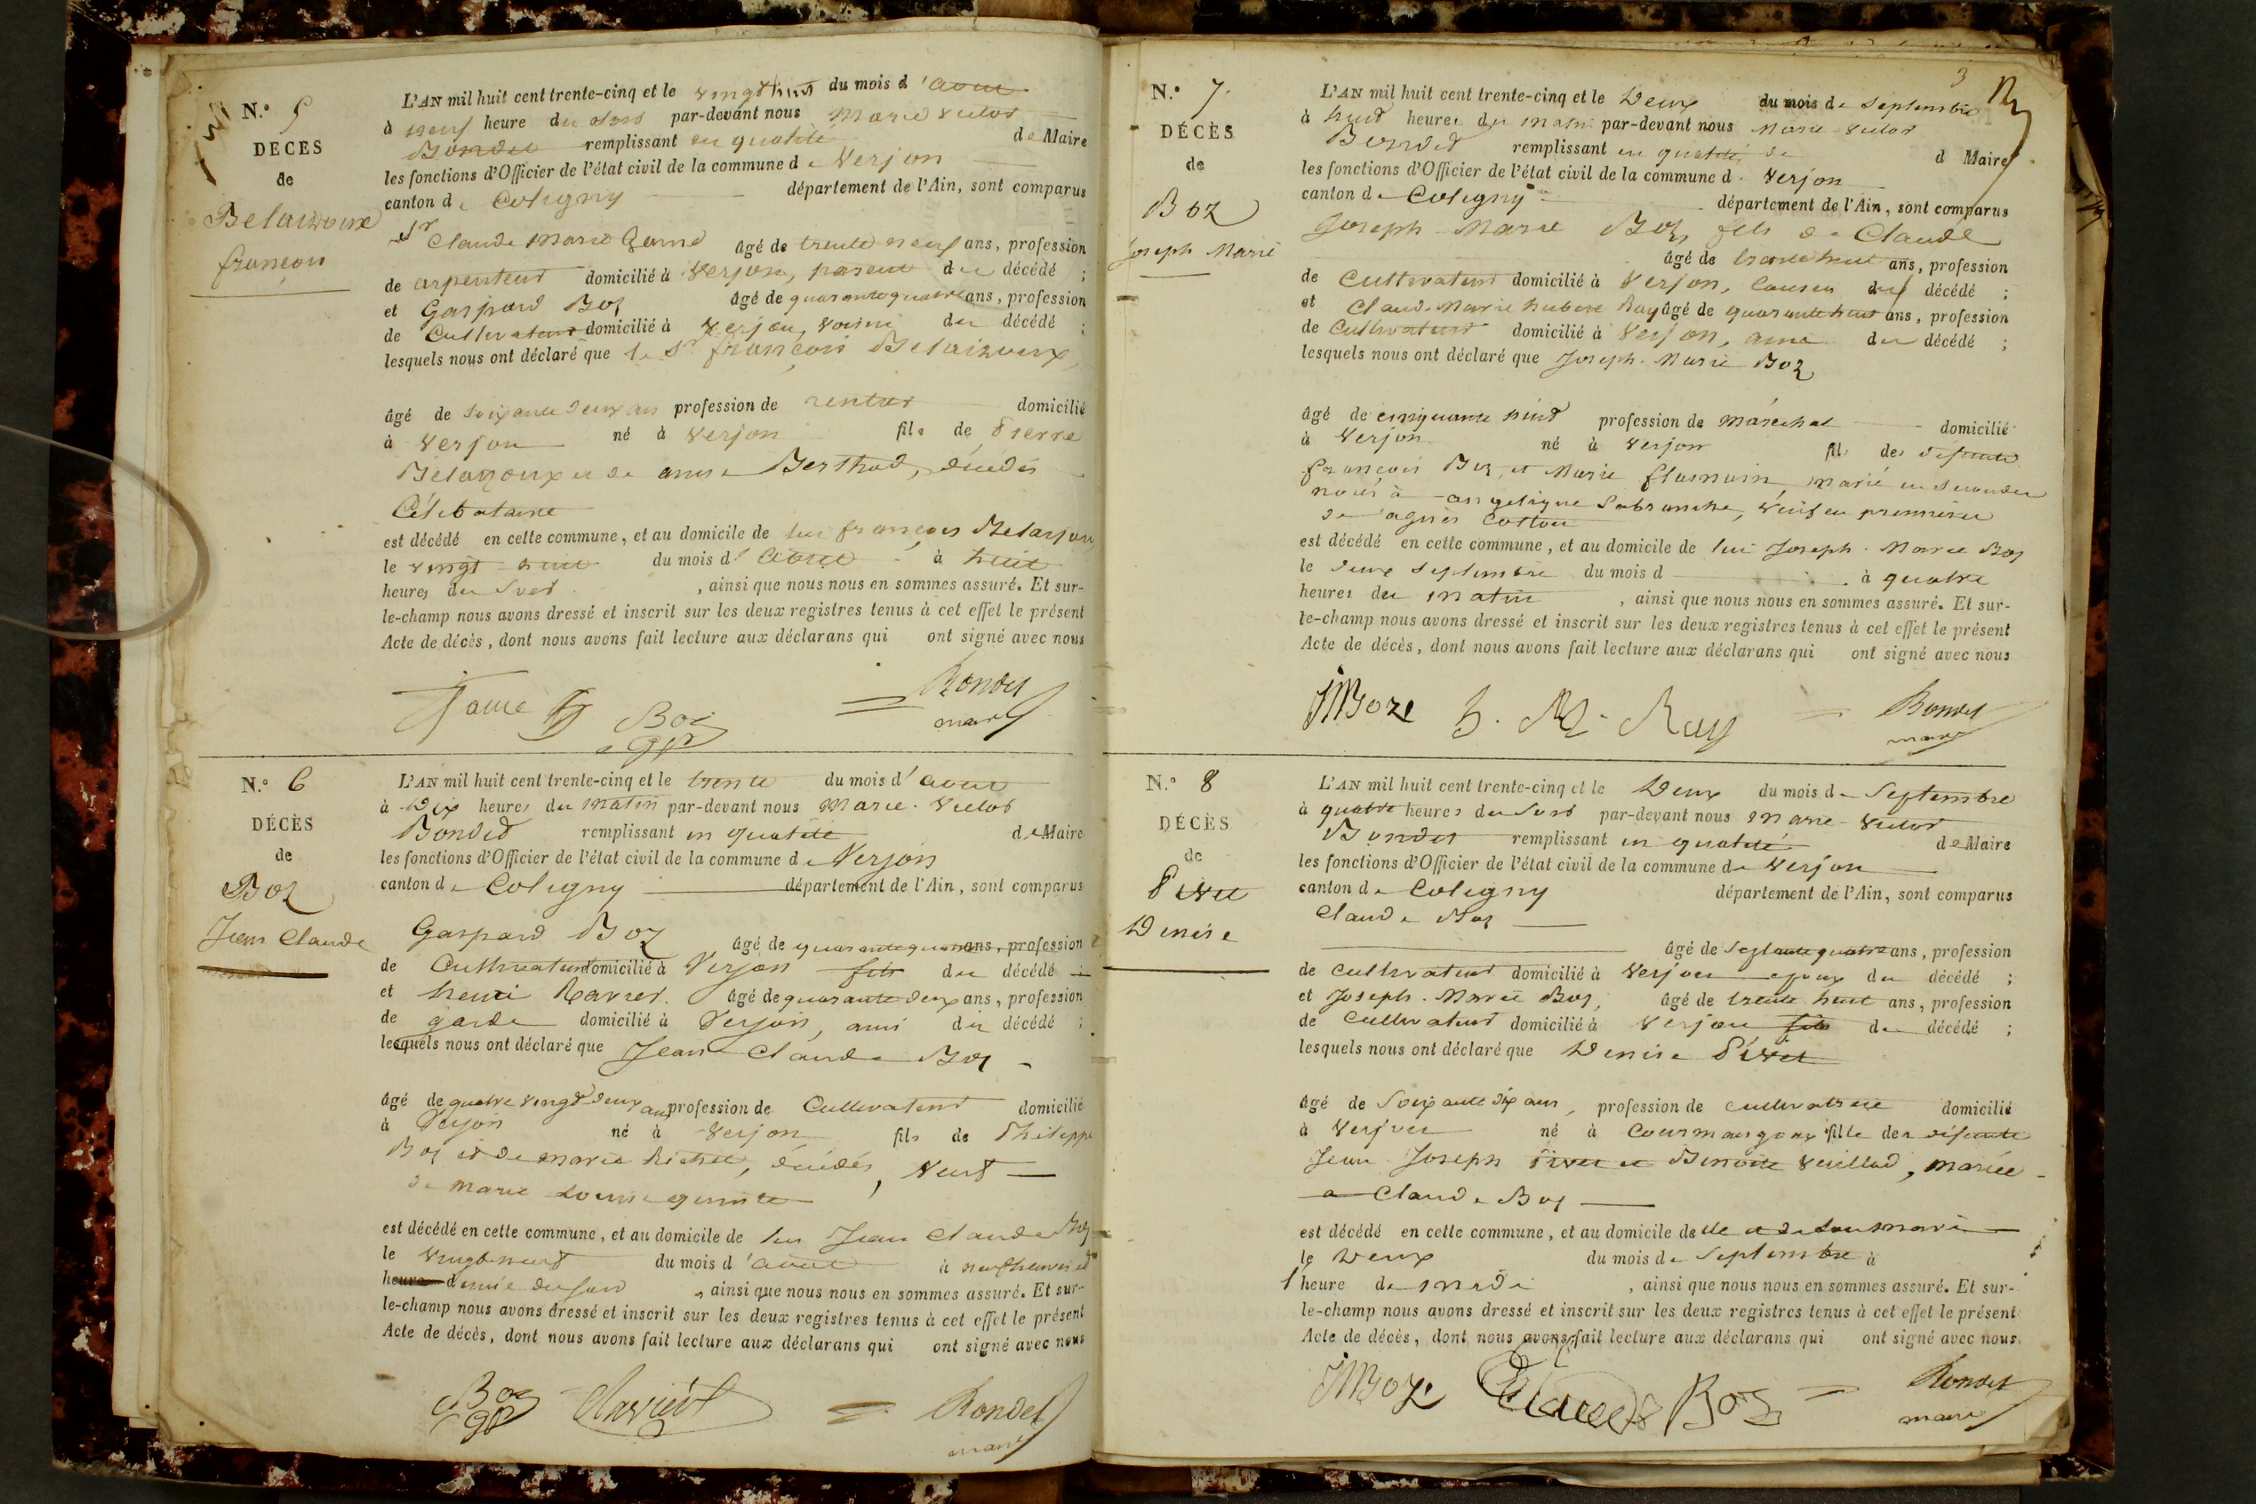 N.° 5
DÉCÈS
de
Belairoux
françois
L'AN mil huit cent trente-cinq et le vingt huit du mois d'aout
à neuf heure du soir par-devant nous Marie Victor
Bondet remplissant en qualité de Maire
les fonctions d'Officier de l'état civil de la commune de Verjon
canton de Coligny département de l'Ain, sont comparus
Sr Claude Marie âgé de trente neuf ans, profession
de arpenteur domicilié à Verjon, parent du décédé ;
et Gaspard Boz âgé de quarante quatre ans, profession
de Cultivateur domicilié à Verjon, voisin du décédé ;
lesquels nous ont déclaré que le Sr françois
âgé de soixante deux ans profession de rentier domicilié
à Verjon né à Verjon fils de Pierre
et de anne décédés
Célibataire
est décédé en cette commune, et au domicile de lui françois
le vingt huit du mois d'aout à huit
heures du soir, ainsi que nous nous en sommes assuré. Et sur-
le-champ nous avons dressé et inscrit sur les deux registres tenus à cet effet le présent
Acte de décès, dont nous avons fait lecture aux déclarans qui ont signé avec nous
Boz
Bondet
maire
N.° 6
DÉCÈS
de
Boz
Jean Claude
L'AN mil huit cent trente-cinq et le trente du mois d'aout
à Dix heures du matin par-devant nous Marie Victor
Bondet remplissant en qualité de Maire
les fonctions d'Officier de l'état civil de la commune de Verjon
canton de Coligny département de l'Ain, sont comparus
Gaspard Boz âgé de quarante quatre ans, profession
de Cultivateur domicilié à Verjon fils du décédé ;
et henri Ravier. âgé de quarante deux ans, profession
de garde domicilié à Verjon, ami du décédé ;
lesquels nous ont déclaré que Jean Claude Boz
âgé de quatre vingt deux ans profession de Cultivateur domicilié
à Verjon né à Verjon fils de Philippe
Boz et de marie décédés, veuf
de marie Louise
est décédé en cette commune, et au domicile de lui Jean Claude Boz
le vingt neuf du mois d'aout à neuf heures et
heure demie du soir, ainsi que nous nous en sommes assuré. Et sur-
le-champ nous avons dressé et inscrit sur les deux registres tenus à cet effet le présent
Acte de décès, dont nous avons fait lecture aux déclarans qui ont signé avec nous
Boz
Ravier
Bondet
maire
3
N.° 7.
DÉCÈS
de
Boz
Joseph Marie
L'AN mil huit cent trente-cinq et le Deux du mois de Septembre
à huit heures du matin par-devant nous Marie Victor
Bondet remplissant en qualité de d Maire
les fonctions d'Officier de l'état civil de la commune d. Verjon
canton de Coligny département de l'Ain, sont comparus
Joseph Marie Boz, fils de Claude
âgé de trente huit ans, profession
de Cultivateur domicilié à Verjon, Cousin du décédé ;
et Claude Marie hubert Ray âgé de quarante huit ans, profession
de Cultivateur domicilié à Verjon, ami du décédé ;
lesquels nous ont déclaré que Joseph Marie Boz
âgé de cinquante huit profession de maréchal domicilié
à Verjon né à Verjon fils des défunts
françois Boz, et Marie marié en secondes
noces à angelique Labranche, veuf en premieres
de agnès Cotton
est décédé en cette commune, et au domicile de lui Joseph Marie Boz
le deux Septembre du mois d à quatre
heures du matin, ainsi que nous nous en sommes assuré. Et sur-
le-champ nous avons dressé et inscrit sur les deux registres tenus à cet effet le présent
Acte de décès, dont nous avons fait lecture aux déclarans qui ont signé avec nous
JMBoze h. M. Ray
Bondet
maire
N.° 8
DÉCÈS
de
Pivet
Denise
L'AN mil huit cent trente-cinq et le Deux du mois de Septembre
à quatre heures du soir par-devant nous Marie Victor
Bondet remplissant en qualité de Maire
les fonctions d'Officier de l'état civil de la commune de Verjon
canton de Coligny département de l'Ain, sont comparus
Claude Boz
âgé de Septante quatre ans, profession
de cultivateur domicilié à Verjon epoux du décédé ;
et Joseph Marie Boz, âgé de trente huit ans, profession
de cultivateur domicilié à Verjon fils du décédé ;
lesquels nous ont déclaré que Denise Pivet
âgé de Soixante dix ans, profession de cultivatrice domicilié
à Verjon né à Courmangoux fille des défunts
Jean Joseph Pivet et Benoite mariée
a Claude Boz
est décédé en cette commune, et au domicile de elle et de son mari
le Deux du mois de Septembre à
l'heure de midi, ainsi que nous nous en sommes assuré. Et sur-
le-champ nous avons dressé et inscrit sur les deux registres tenus à cet effet le présent
Acte de décès, dont nous avons fait lecture aux déclarans qui ont signé avec nous.
JMBoze Claude Boz
Bondet
maire